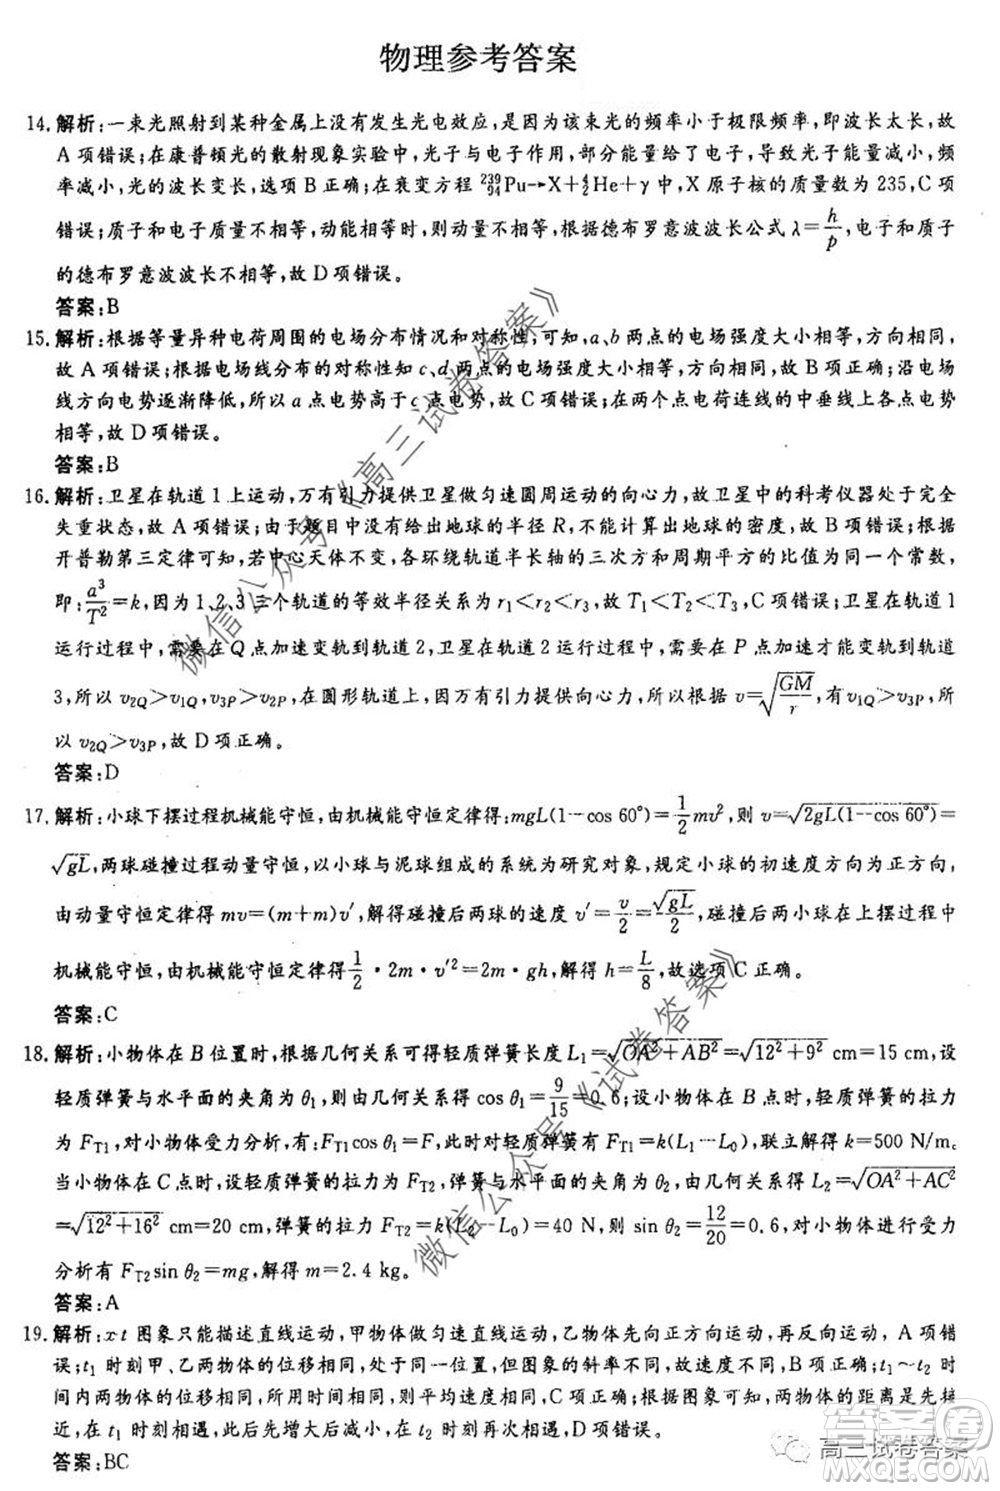 物理参考答案
14.解析:一束光照射到某种金属上没有发生光电效应,是因为该束光的频率小于极限频率,即波长太长,故
A项错误;在康普顿光的散射现象实验中,光子与电子作用,部分能量给了电子,导致光子能量减小,频
率减小,光的波长变长,选项B正确;在衰变方程 ²³⁹₉₄Pu→X+⁴₂He+γ中,X原子核的质量数为235,C项
错误;质子和电子质量不相等,动能相等时,则动量不相等,根据德布罗意波波长公式λ=h/p,电子和质子
的德布罗意波波长不相等,故D项错误。
答案:B
15.解析:根据等量异种电荷周围的电场分布情况和对称性,可知,a、b两点的电场强度大小相等,方向相同,
故A项错误;根据电场线分布的对称性知c、d两点的电场强度大小相等,方向相同,故B项正确;沿电场
线方向电势逐渐降低,所以a点电势高于c点电势,故C项错误;在两个点电荷连线的中垂线上各点电势
相等,故D项错误。
答案:B
16.解析:卫星在轨道1上运动,万有引力提供卫星做匀速圆周运动的向心力,故卫星中的科考仪器处于完全
失重状态,故A项错误;由于题目中没有给出地球的半径R,不能计算出地球的密度,故B项错误;根据
开普勒第三定律可知,若中心天体不变,各环绕轨道半长轴的三次方和周期平方的比值为同一个常数,
即:a³/T²=k,因为1、2、3三个轨道的等效半径关系为r₁<r₂<r₃,故T₁<T₂<T₃,C项错误;卫星在轨道1
运行过程中,需要在Q点加速变轨到轨道2,卫星在轨道2运行过程中,需要在P点加速才能变轨到轨道
3,所以v₂Q>v₁Q,v₃P>v₂P,在圆形轨道上,因万有引力提供向心力,所以根据v=√(GM/r),有v₁Q>v₃P,所
以v₂Q>v₃P,故D项正确。
答案:D
17.解析:小球下摆过程机械能守恒,由机械能守恒定律得:mgL(1-cos 60°)=1/2mv²,则v=√(2gL(1-cos 60°))=
√(gL),两球碰撞过程动量守恒,以小球与泥球组成的系统为研究对象,规定小球的初速度方向为正方向,
由动量守恒定律得mv=(m+m)v′,解得碰撞后两球的速度v′=v/2=√(gL)/2,碰撞后两小球在上摆过程中
机械能守恒,由机械能守恒定律得1/2·2m·v′²=2m·gh,解得h=L/8,故选项C正确。
答案:C
18.解析:小物体在B位置时,根据几何关系可得轻质弹簧长度L₁=√(OA²+AB²)=√(12²+9²) cm=15 cm,设
轻质弹簧与水平面的夹角为θ₁,则由几何关系得cos θ₁=9/15=0.6;设小物体在B点时,轻质弹簧的拉力
为F_T1,对小物体受力分析,有:F_T1cos θ₁=F,此时对轻质弹簧有F_T1=k(L₁-L₀),联立解得k=500 N/m。
当小物体在C点时,设轻质弹簧的拉力为F_T2,轻质弹簧与水平面的夹角为θ₂,由几何关系得L₂=√(OA²+AC²)
=√(12²+16²) cm=20 cm,弹簧的拉力F_T2=k(L₂-L₀)=40 N,则sin θ₂=12/20=0.6,对小物体进行受力
分析有F_T2sin θ₂=mg,解得m=2.4 kg。
答案:A
19.解析:x-t图象只能描述直线运动,甲物体做匀速直线运动,乙物体先向正方向运动,再反向运动,A项错
误;t₁时刻甲、乙两物体的位移相同,处于同一位置,但图象的斜率不同,故速度不同,B项正确;t₁~t₂时
间内两物体的位移相同,所用时间相同,则平均速度相同,C项正确;根据图象可知,两物体的距离是先接
近,在t₁时刻相遇,之后先增大后减小,在t₂时刻再次相遇,D项错误。
答案:BC
微信公众号《高三试卷答案》
微信公众号《试卷答案》
高三试卷答案
答案圈
MXQE.COM